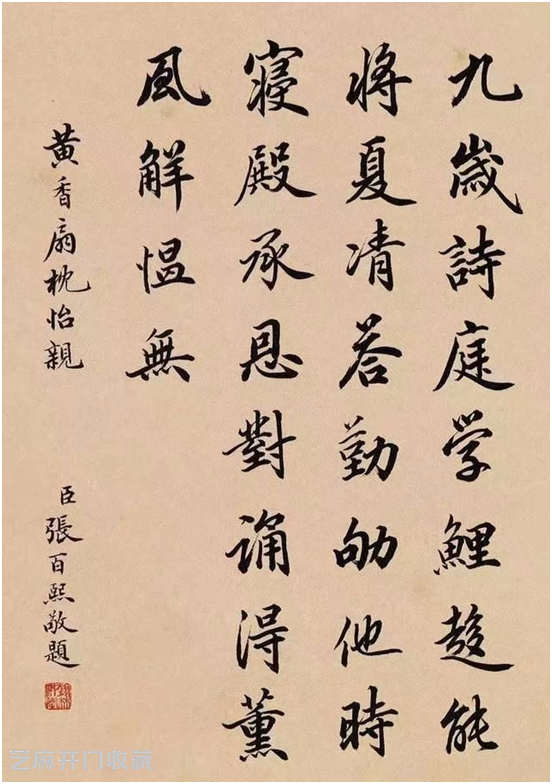 九歲詩庭学鯉趍能
將夏凊荅勤劬他時
寢殿承恩對誦得薰
風解愠無
黄香扇枕怡親
臣張百熙敬題
芝麻开门收藏